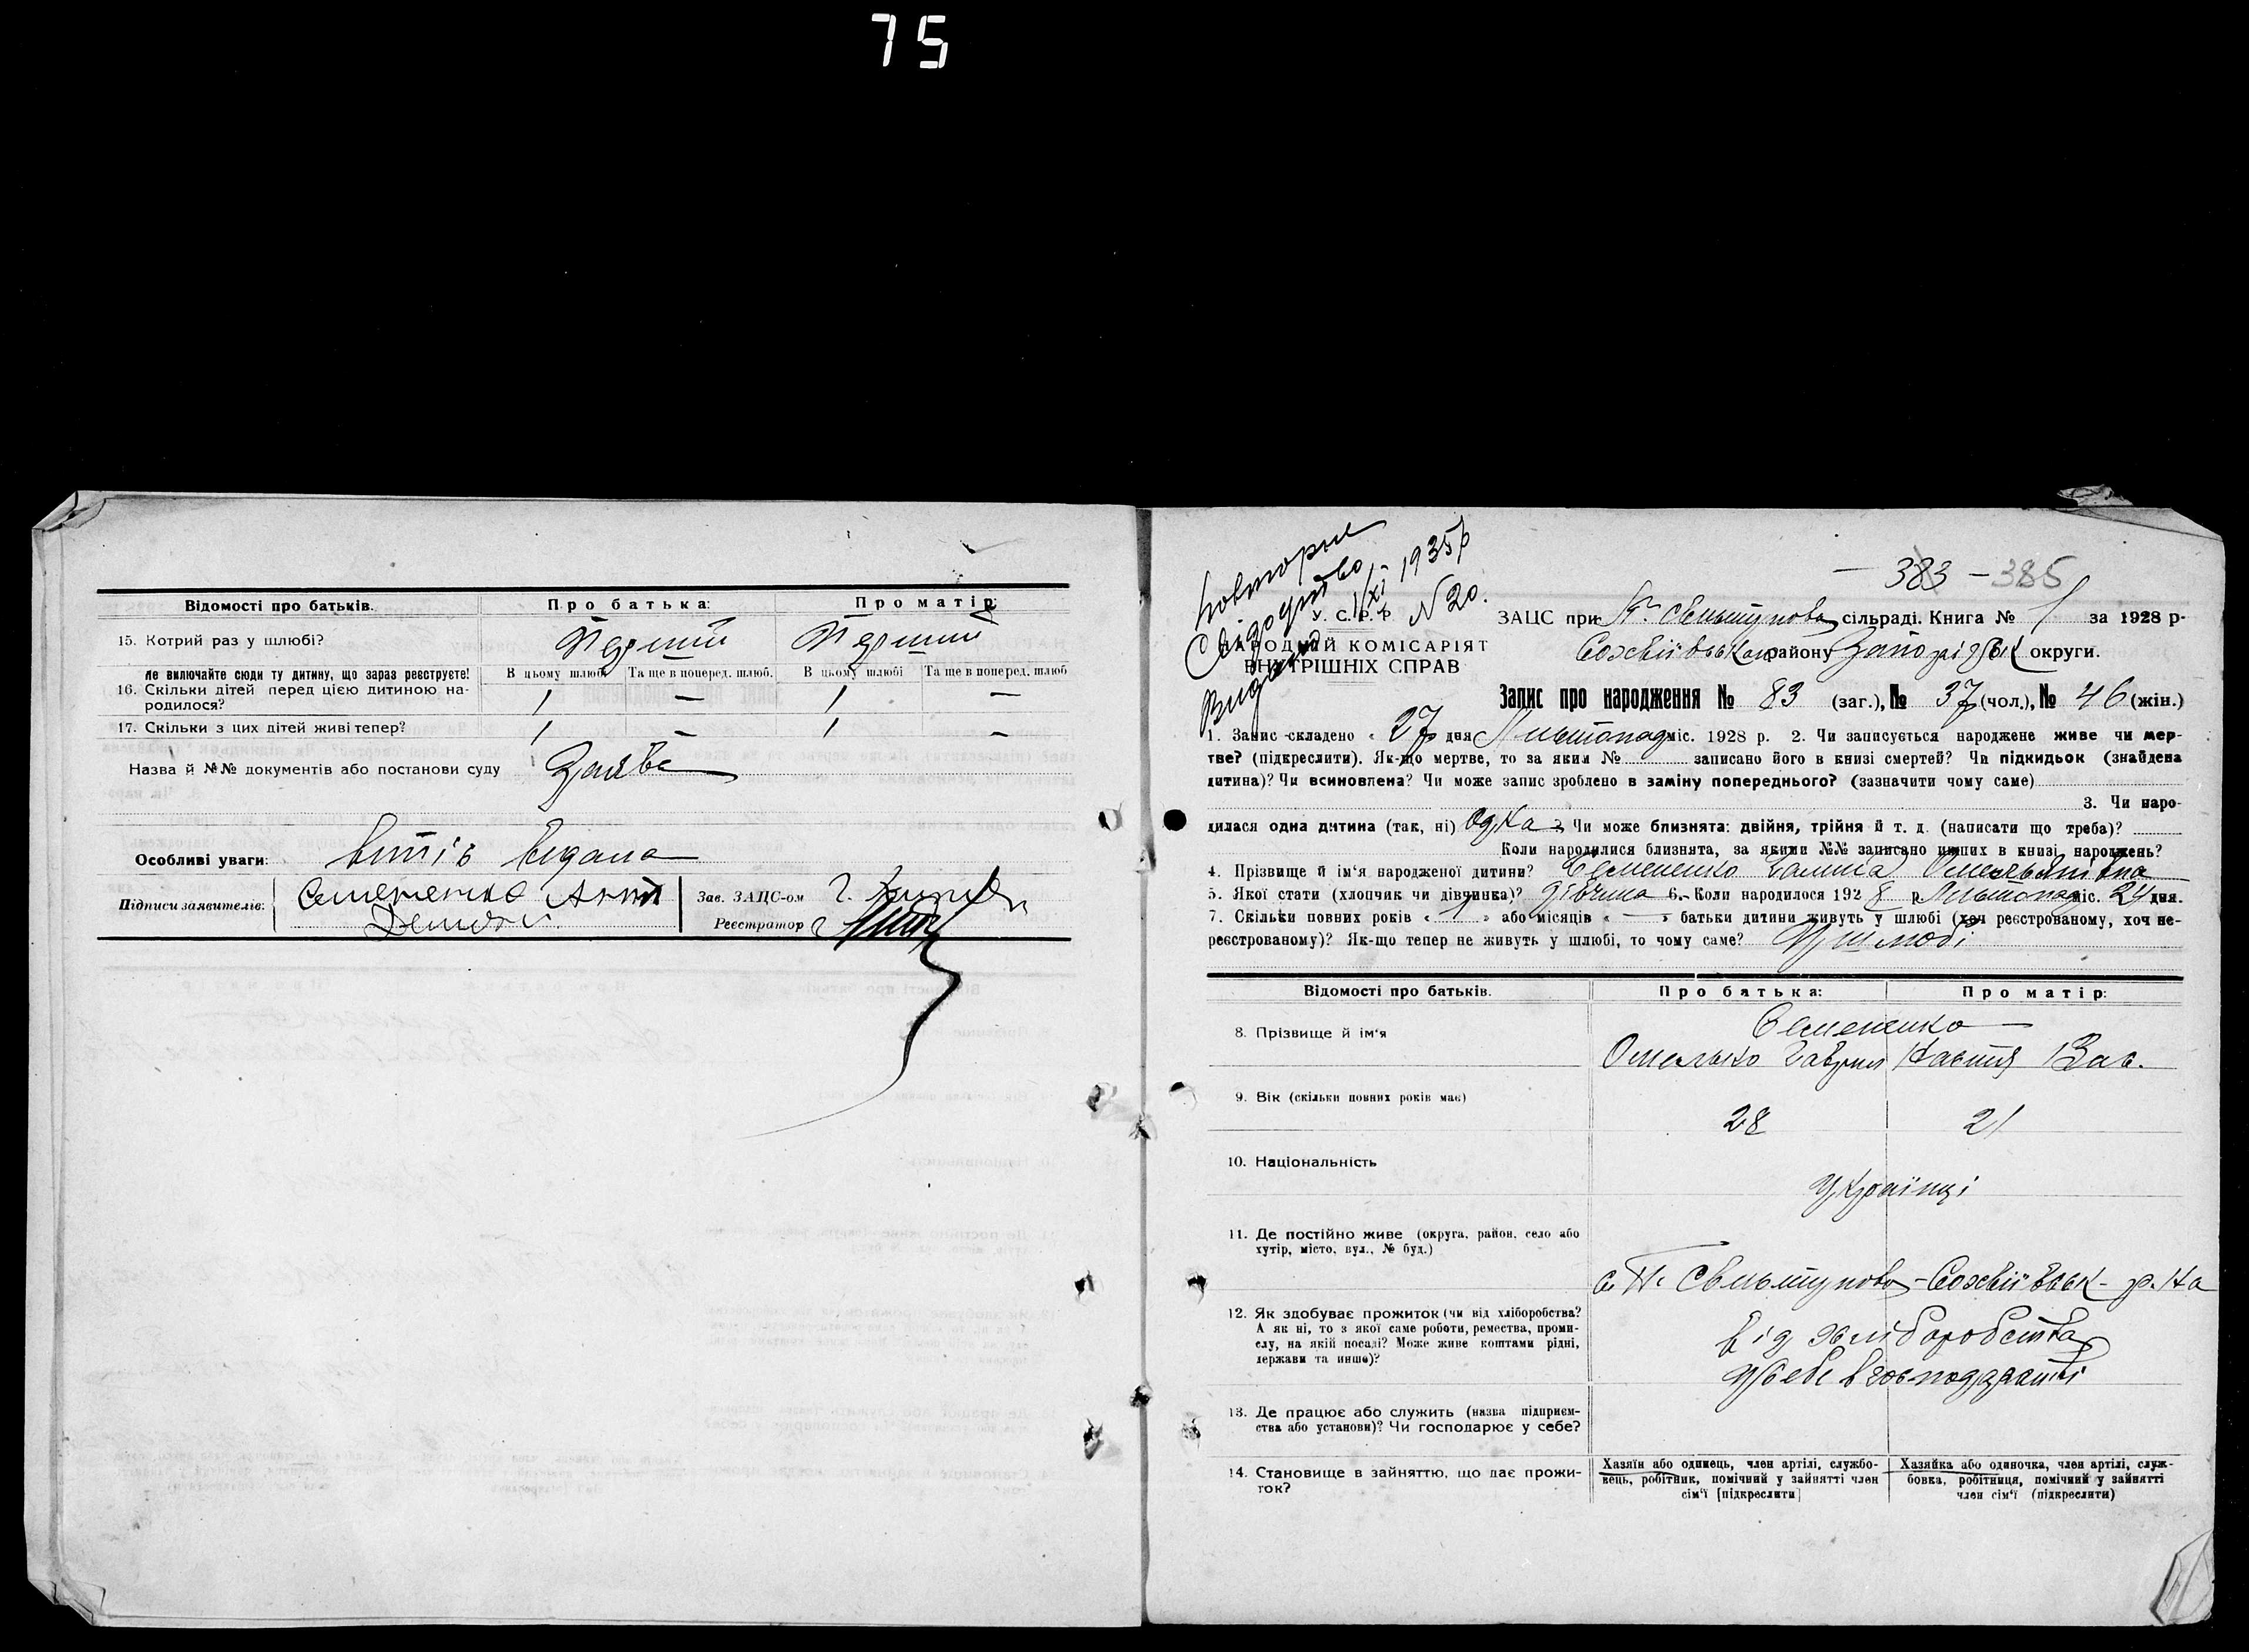 75
Відомості про батьків. Про батька: Про матір:
15. Котрий раз у шлюбі? Перший Перший
Не включайте сюди ту дитину, що зараз реєструєте! В цьому шлюбі Та ще в поперед. шлюб. В цьому шлюбі Та ще в поперед. шлюб
16. Скільки дітей перед цією дитиною на-
родилося? 1 — 1 —
17. Скільки з цих дітей живі тепер? 1 — 1 —
Назва й №№ документів або постанови суду Заява
Особливі уваги: витів видана
Підписи заявителів: Семененко
Зав. ЗАЦС-ом
Реєстратор
— 383 — 385
Повторне
Свідоцтво
Видано 1/XI - 1935 р
N 20.
У. С. Р. Р
НАРОДНІЙ КОМІСАРІЯТ
ВНУТРІШНІХ СПРАВ
ЗАЦС при сільраді. Книга № 1 за 1928 р-
району округи.
Запис про народження № 83 (заг.), № 37 (чол.), № 46 (жін.)
1. Запис складено « 27 дня Листопад міс. 1928 р. 2. Чи записується народжене живе чи мер-
тве? (підкреслити). Як-що мертве, то за яким № записано його в книзі смертей? Чи підкидьок (знайдена
дитина)? Чи всиновлена? Чи може запис зроблено в заміну попереднього? (зазначити чому саме)
3. Чи наро-
дилася одна дитина (так, ні) Одна Чи може близнята: двійня, трійня й т. д. (написати що треба)?
Коли народилися близнята, за якими №№ записано инших в книзі народжень?
4. Прізвище й ім'я народженої дитини? Семененко Галина Омельянівна
5. Якої стати (хлопчик чи дівчинка)? дівчина 6. Коли народилося 192 8 р Листопад міс. 24 дня.
7. Скільки повних років « » або місяців « — » батьки дитини живуть у шлюбі (хоч реєстрованому, хоч не-
реєстрованому)? Як-що тепер не живуть у шлюбі, то чому саме? У шлюбі
Відомості про батьків. Про батька: Про матір:
8. Прізвище й ім'я Семененко
Омелько Гаврил Настя Вас.
9. Вік (скільки повних років має)
28 21
10. Національність
Українці
11. Де постійно живе (округа, район, село або
хутір, місто, вул., № буд.)
12. Як здобуває прожиток (чи від хліборобства?
А як ні, то з якої саме роботи, ремества, проми-
слу, на якій посаді? Може живе коштами рідні,
держави та инше)?
від хліборобства
у себе в господарстві
13. Де працює або служить (назва підприєм-
ства або установи)? Чи господарює у себе?
14. Становище в зайняттю, що дає прожи-
ток?
Хазяїн або одинець, член артілі, службо-
вець, робітник, помічний у зайнятті член
сім'ї [підкреслити]
Хазяйка або одиночка, член артілі, служ-
бовка, робітниця, помічний у зайнятті
член сім'ї (підкреслити)